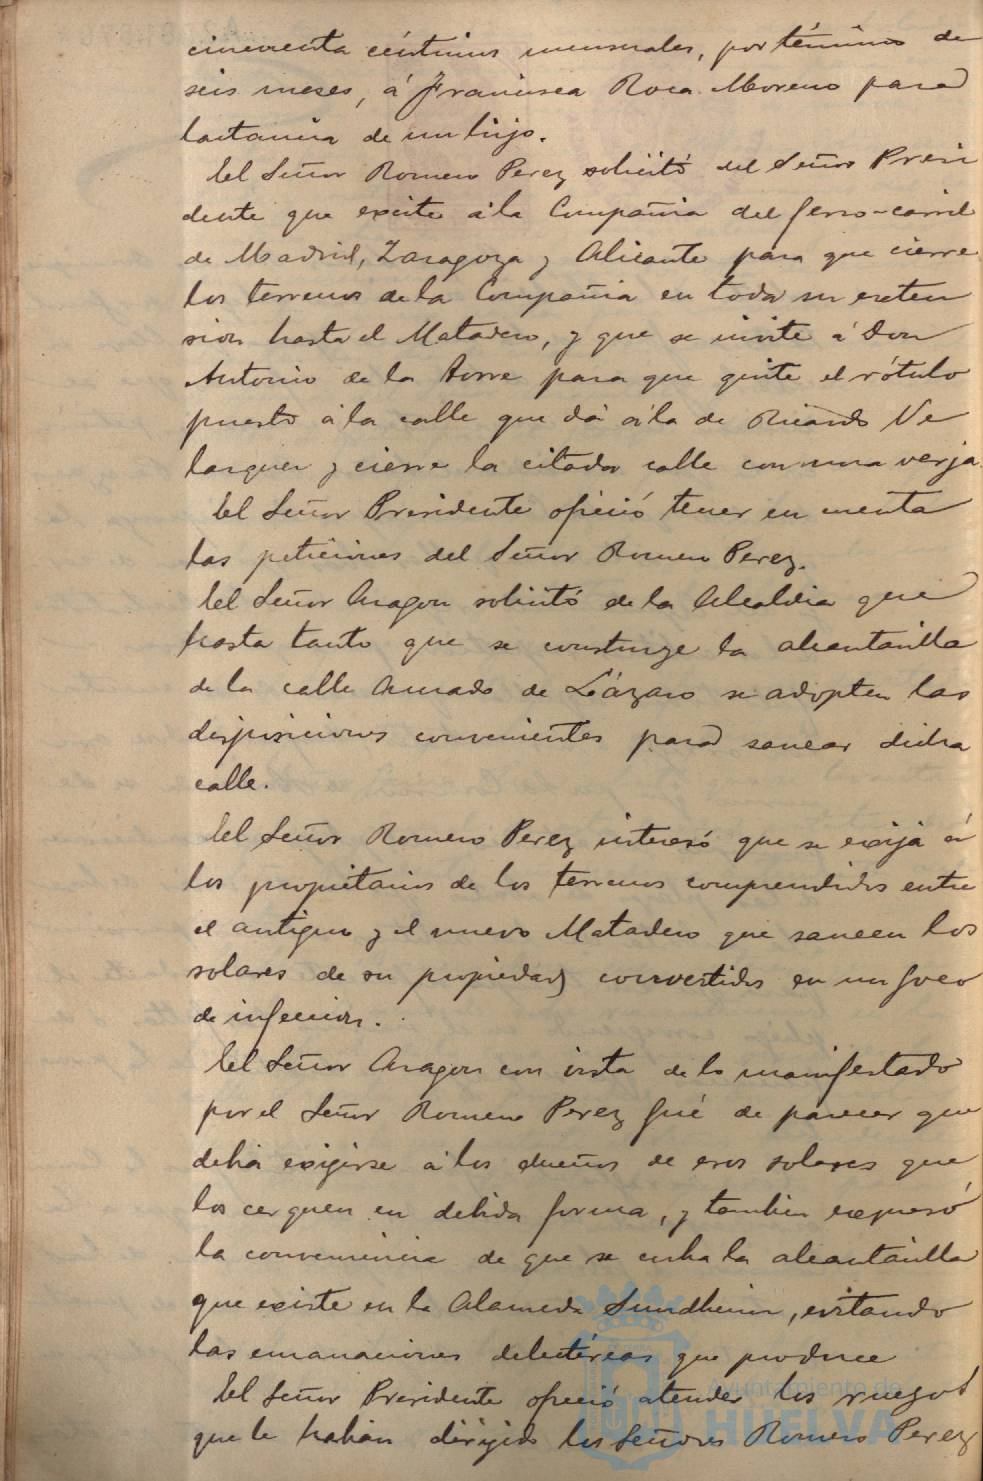 cincuenta céntimos mensuales, por término de
seis meses, á Francisca Roca Moreno para
lactancia de un hijo.
El Señor Romero Perez solicitó del Señor Presi
dente que excite á la Compañia del ferro-carril
de Madrid, Zaragoza y Alicante para que cierre
los terrenos de la Compañia en toda su exten
sion hasta el Matadero, y que se invite á Don
Antonio de la Torre para que quite el rótulo
puesto á la calle que dá á la de Ricardo Ve
lazquez y cierre la citada calle con una verja.
El Señor Presidente ofreció tener en cuenta
las peticiones del Señor Romero Perez.
El Señor Aragon solicitó de la Alcaldia que
hasta tanto que se construye la alcantarilla
de la calle Amado de Lázaro se adopten las
disposiciones convenientes para sanear dicha
calle.
El Señor Romero Perez interesó que se exija á
los propietarios de los terrenos comprendidos entre
el antiguo y el nuevo Matadero que saneen los
solares de su propiedad convertidos en un foco
de infeccion.
El Señor Aragon con vista de lo manifestado
por el Señor Romero Perez fué de parecer que
debia exigirse á los dueños de esos solares que
los cerquen en debida forma, y tambien expresó
la conveniencia de que se cubra la alcantarilla
que existe en la Alameda Sundheim, evitando
las emanaciones deletéreas que produce
El Señor Presidente ofreció atender los ruegos
que le habian dirigido los Señores Romero Perez
Ayuntamiento de
HUELVA